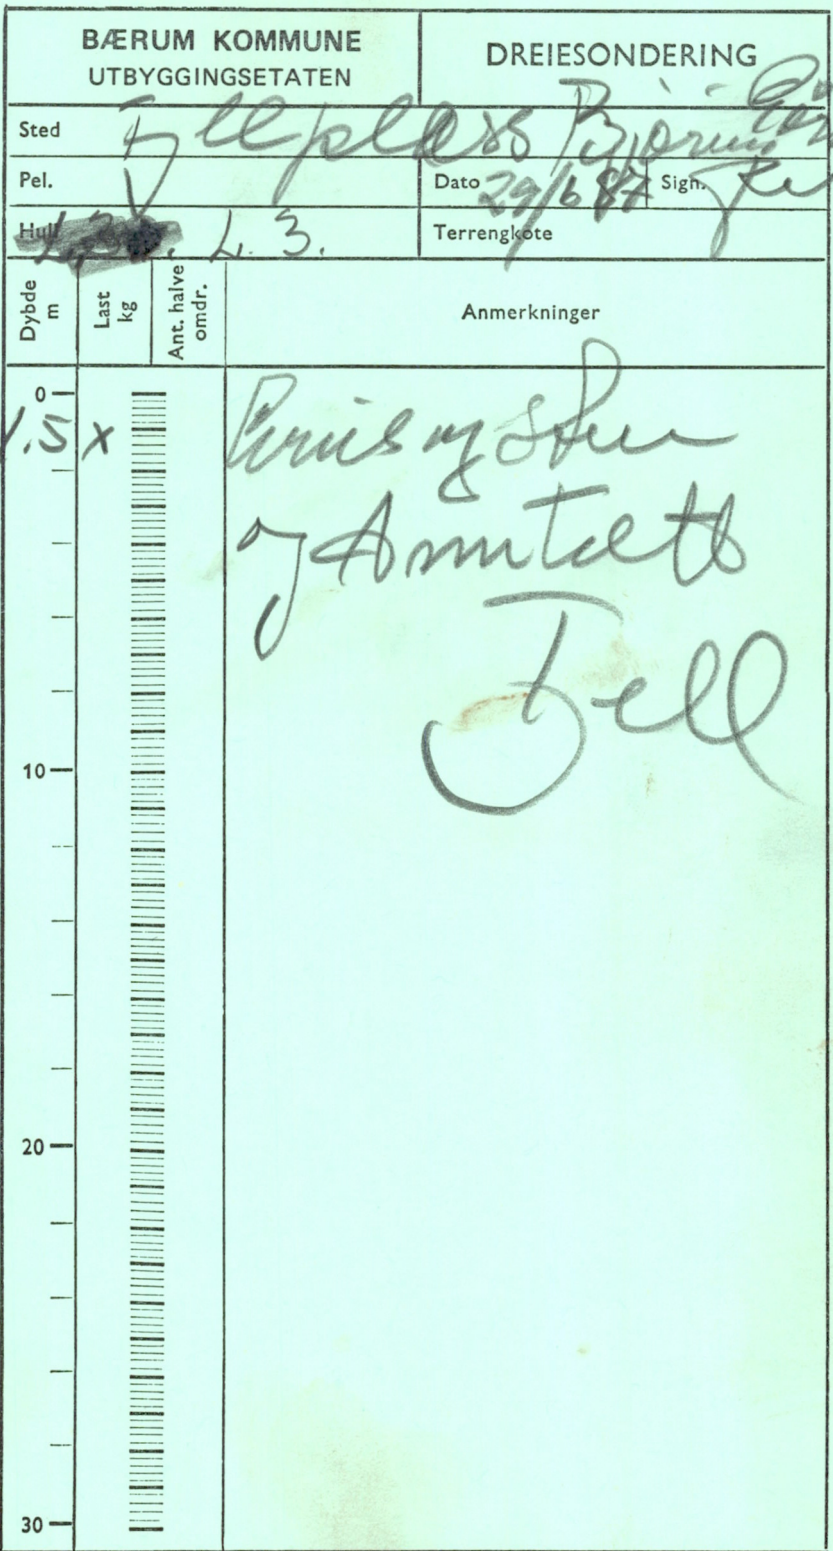 BÆRUM KOMMUNE
UTBYGGINGSETATEN
DREIESONDERING
Sted Fyllplass Bjørum
Pel.
Dato 29/6 87 Sign.
Hull L. 3.
Terrengkote
Dybde m
Last kg
Ant. halve omdr.
Anmerkninger
0
1.5 x
og Sten
og
Fjell
10
20
30